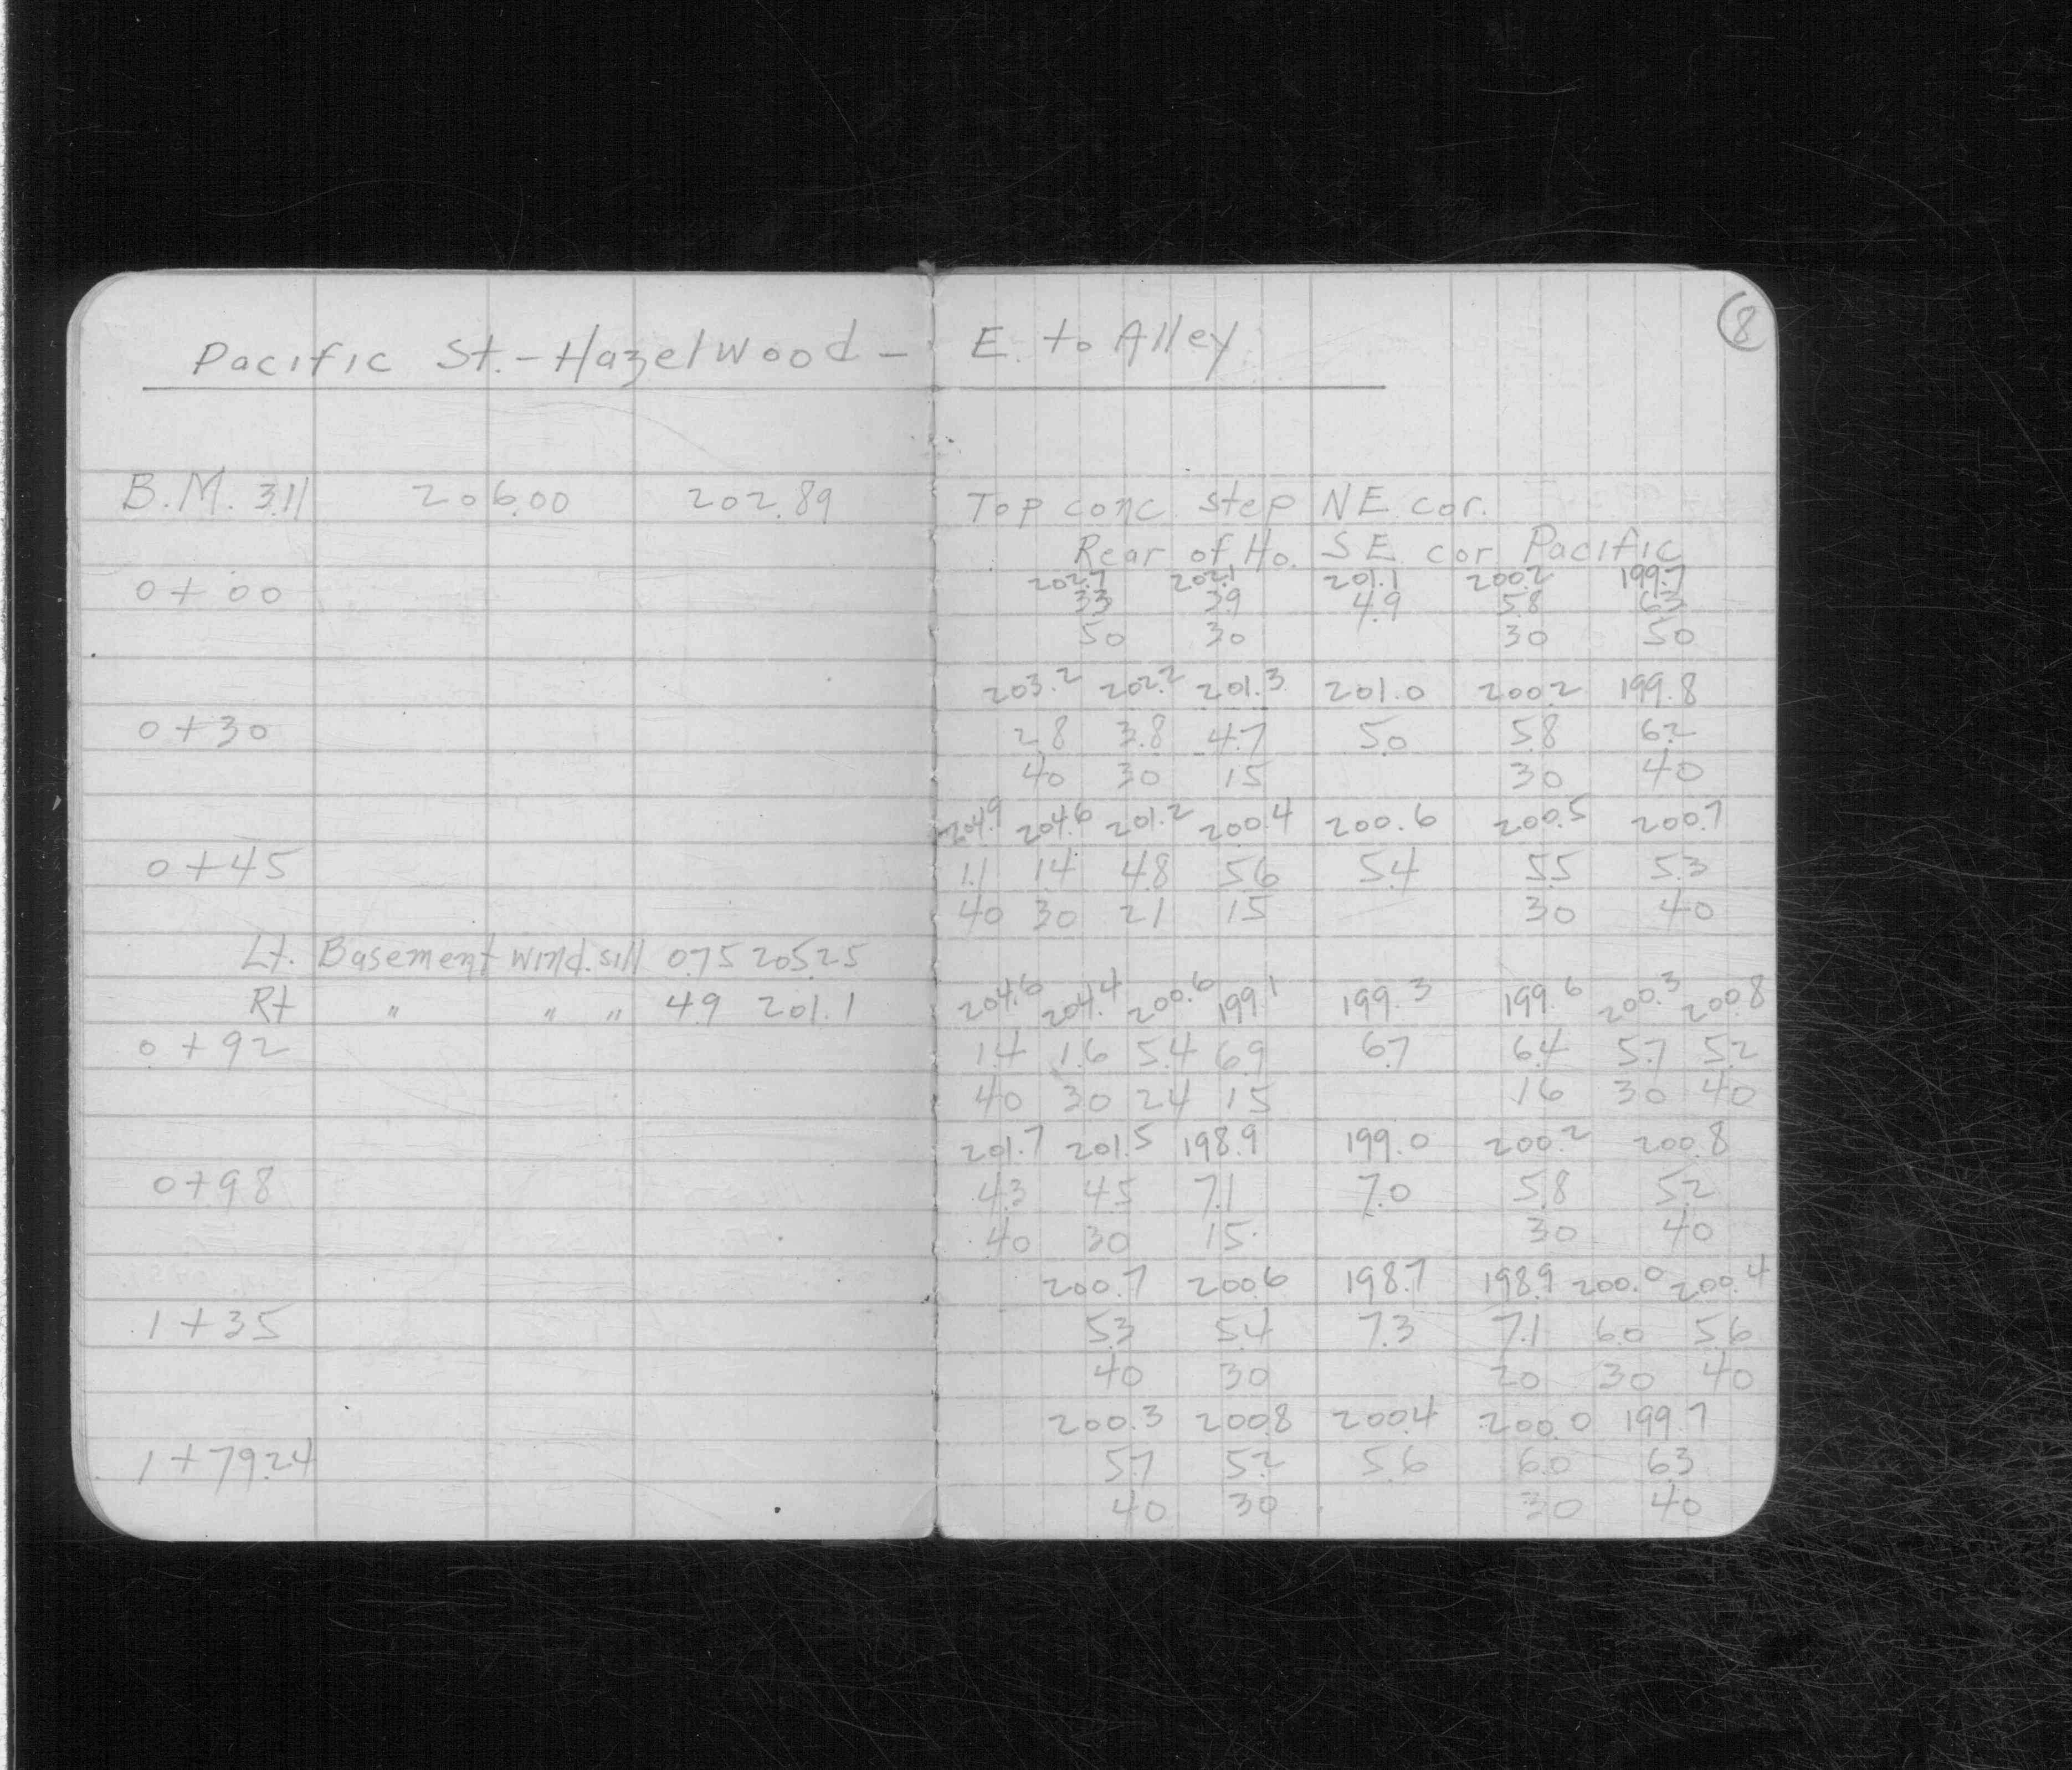 Pacific St. - Hazelwood - E. to Alley
8
B.M. 3.11 206.00 202.89 Top conc. step NE. cor.
Rear of Ho. S.E. cor. Pacific
202.7 202.1 201.1 200.2 199.7
0+00 3.3 3.9 4.9 5.8 6.3
50 30 30 50
203.2 202.2 201.3 201.0 200.2 199.8
0+30 2.8 3.8 4.7 5.0 5.8 6.2
40 30 15 30 40
204.9 204.6 201.2 200.4 200.6 200.5 200.7
0+45 1.1 1.4 4.8 5.6 5.4 5.5 5.3
40 30 21 15 30 40
Lt. Basement wind. sill 0.75 205.25
Rt " " " 4.9 201.1 204.6 204.4 200.6 199.1 199.3 199.6 200.3 200.8
0+92 1.4 1.6 5.4 6.9 6.7 6.4 5.7 5.2
40 30 24 15 16 30 40
201.7 201.5 198.9 199.0 200.2 200.8
0+98 4.3 4.5 7.1 7.0 5.8 5.2
40 30 15 30 40
200.7 200.6 198.7 198.9 200.0 200.4
1+35 5.3 5.4 7.3 7.1 6.0 5.6
40 30 20 30 40
200.3 200.8 200.4 200.0 199.7
1+79.24 5.7 5.2 5.6 6.0 6.3
40 30 30 40